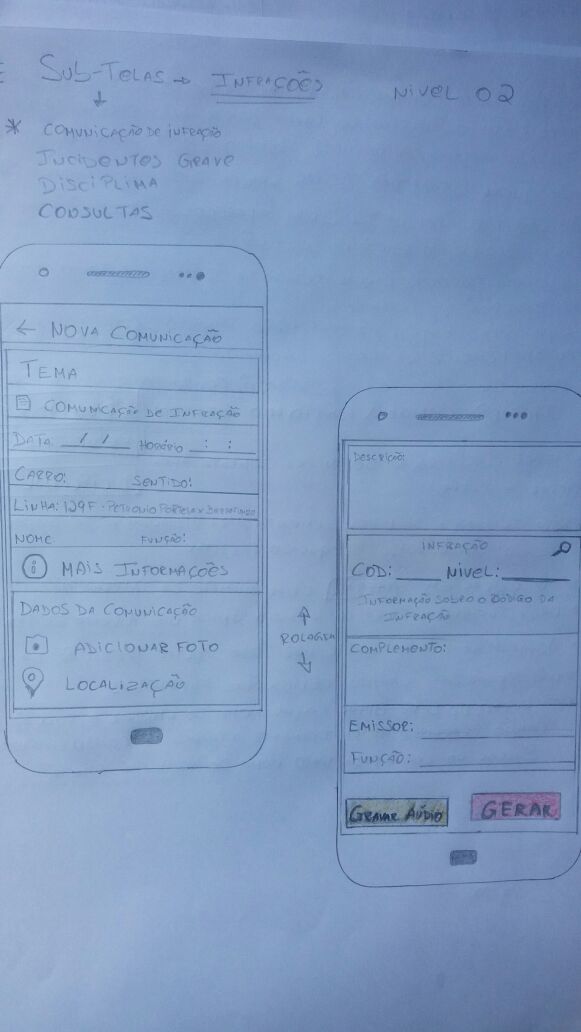 SUB-TELAS → INFRAÇÕES NIVEL 02
* COMUNICAÇÃO DE INFRAÇÃO
INCIDENTES GRAVE
DISCIPLIMA
CONSULTAS
← NOVA COMUNICAÇÃO
TEMA
COMUNICAÇÃO DE INFRAÇÃO
DATA __/__/__ HORÁRIO __:__:__
CARRO: ____ SENTIDO:
LINHA: 129F - PETRONIO PORTELA X
NOME FUNÇÃO:
i MAIS INFORMAÇÕES
DADOS DA COMUNICAÇÃO
ADICIONAR FOTO
LOCALIZAÇÃO
ROLAGEM
DESCRIÇÃO:
INFRAÇÃO
COD: ____ NIVEL: ____
INFORMAÇÃO SOBRE O CÓDIGO DA
INFRAÇÃO
COMPLEMENTO:
EMISSOR:
FUNÇÃO:
GRAVAR AÚDIO GERAR